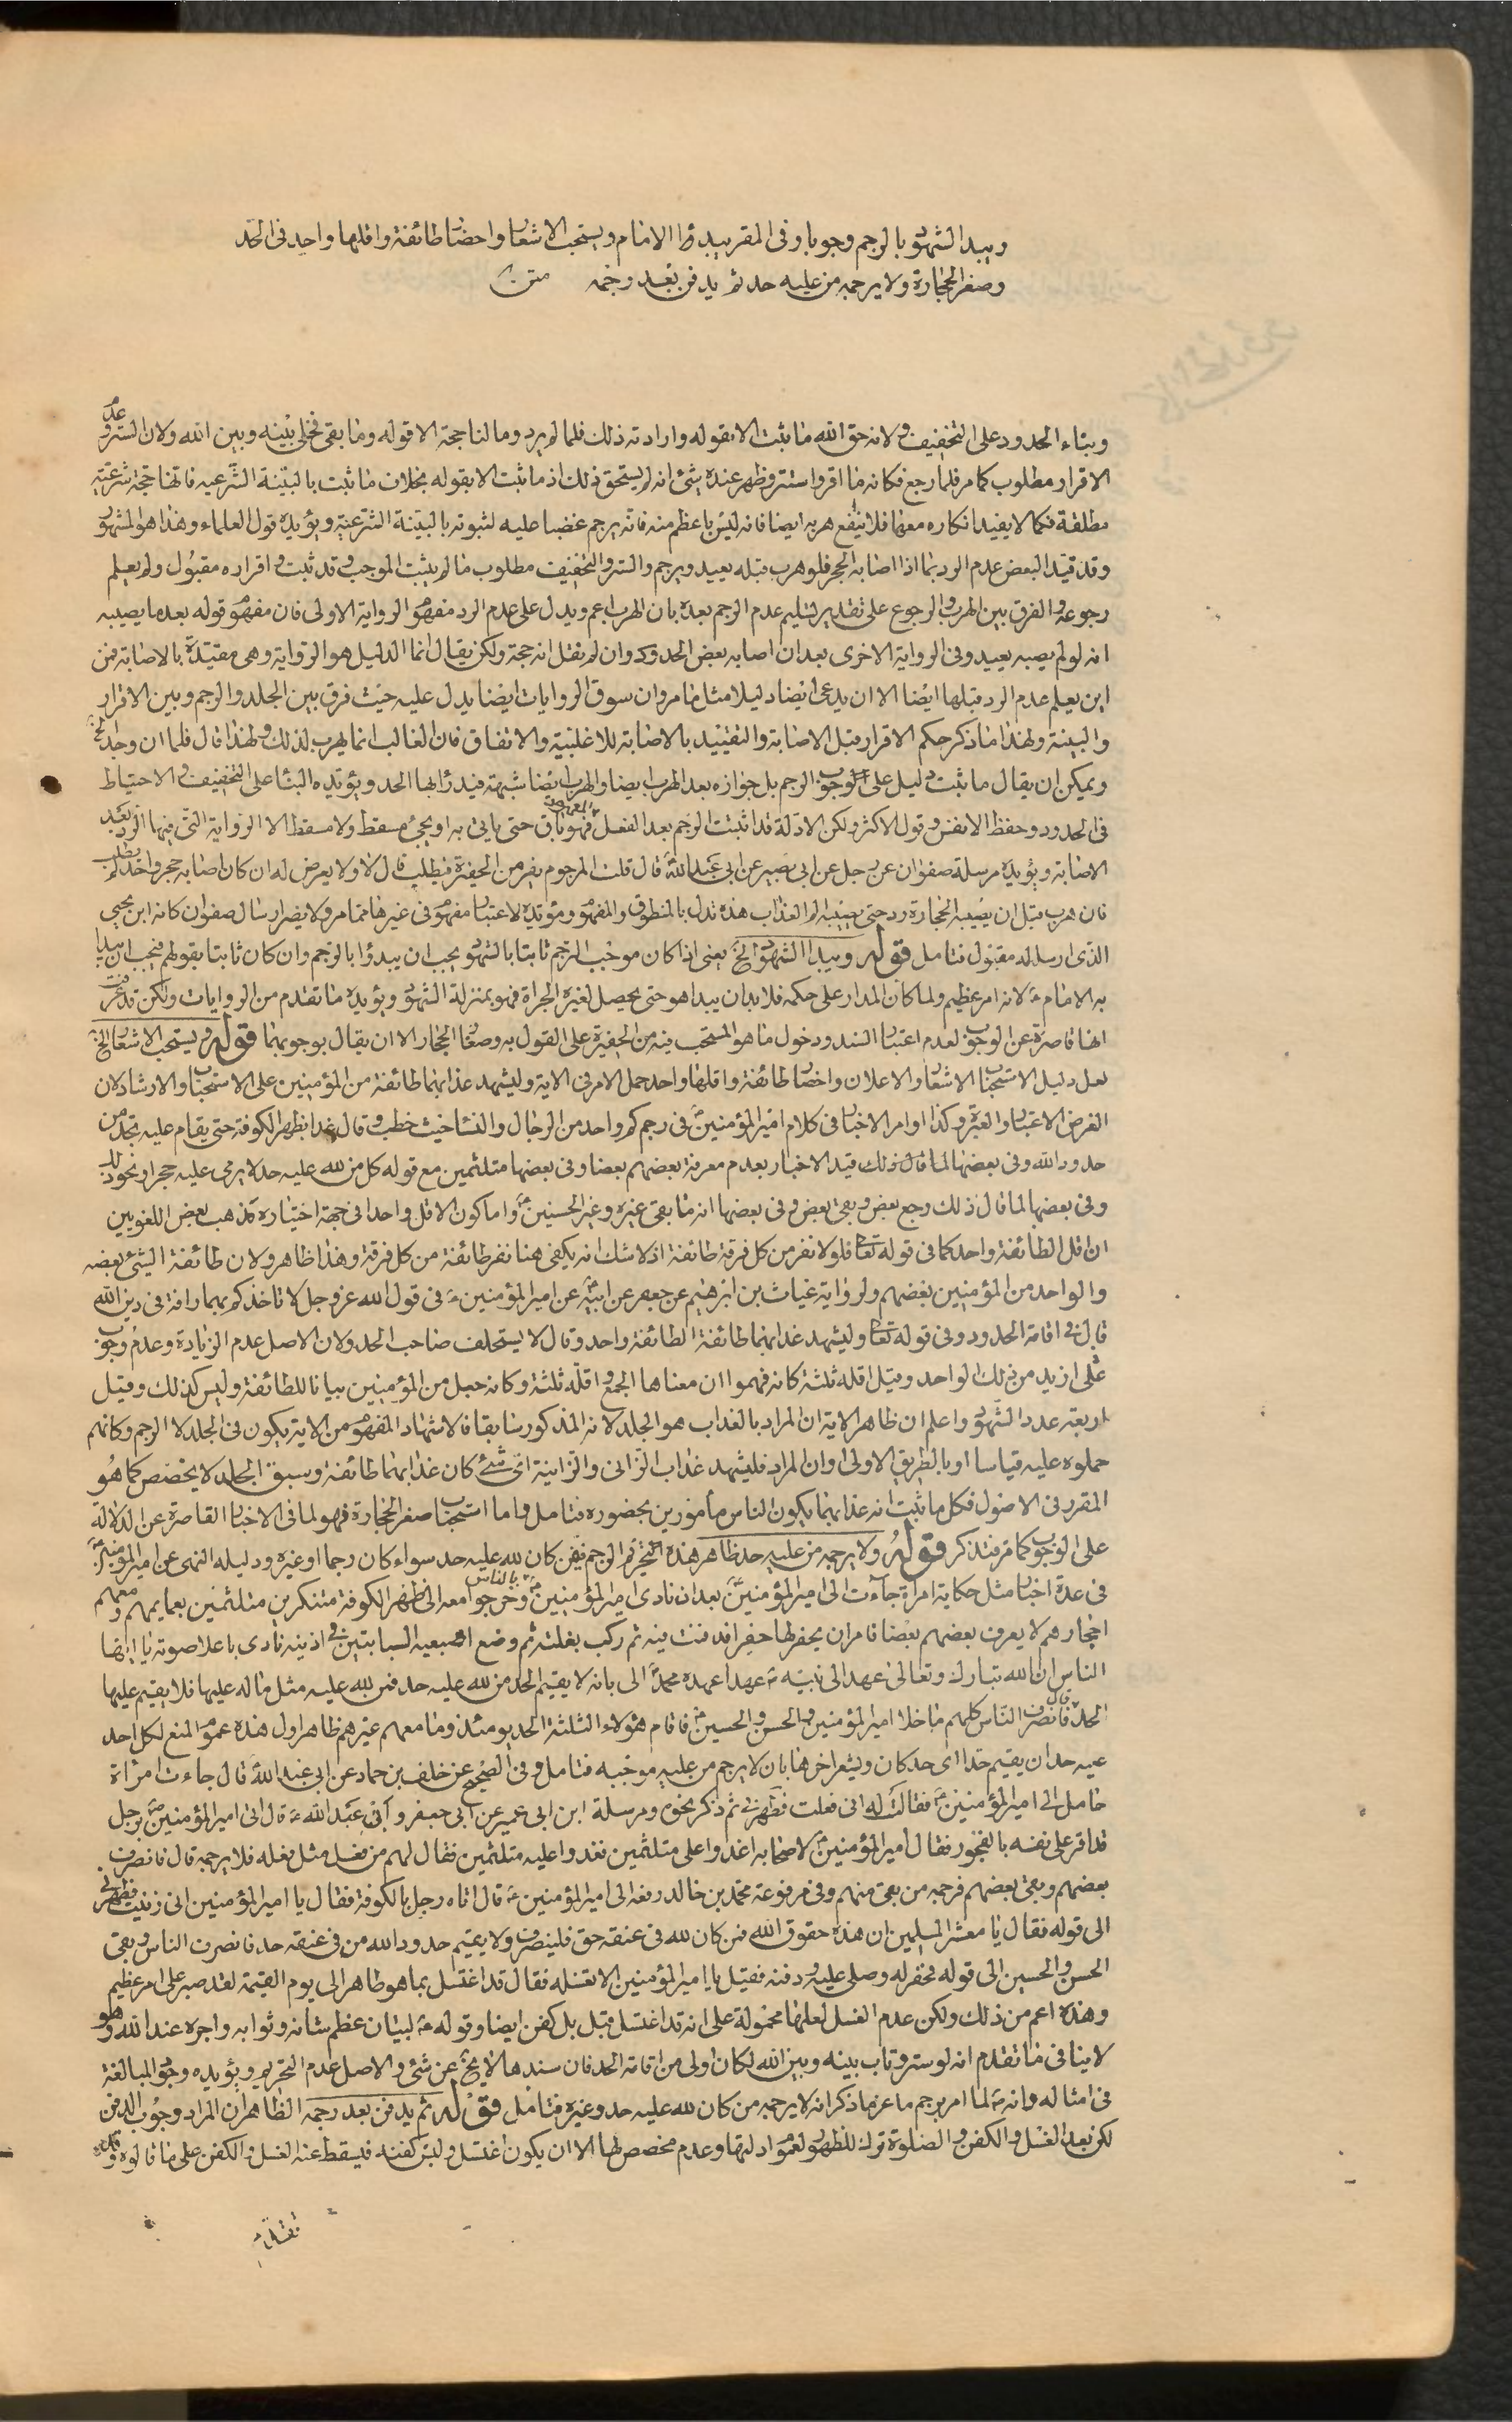 ويبدا الشهود بالرجم وجوبا وفى المقر يبدؤا الامام ويستحب الاشعار واحضار طائفة واقلها واحد فى الحد
وصغر الحجارة ولا يرجمه من عليه حد ثم يدفن بعد رجمه متن
وبناء الحدود على التخفيف ولانه حق الله ما يثبت الا بقوله وارادته ذلك فلما لم يرد وما لنا حجة الا قوله وما بقى فخلى بينه وبين الله ولان الستر وعدم
الاقرار مطلوب كما مر فلما رجع فكانه ما اقر واستتر وظهر عنده شئ انه لم يستحق ذلك اذ ما ثبت الا بقوله بخلاف ما ثبت بالبينة الشرعيه فانها حجة شرعية
مطلقة فكما لا يفيد انكاره معها فلا ينفع هربه ايضا فانه ليس باعظم منه فانه يرجم غضبا عليه لثبوته بالبينة الشرعية ويؤيده قول العلماء وهذا هو المشهور
وقد قيد البعض عدم الرد بما اذا اصابه الحجر فلو هرب قبله يعيد ويرجم والستر والتخفيف مطلوب ما لم يثبت الموجب وقد ثبت واقراره مقبول ولم يعلم
رجوعه والفرق بين الهرب والرجوع على تقدير تسليم عدم الرجم بعده بان الهرب اعم ويدل على عدم الرد مفهوم الرواية الاولى فان مفهوم قوله بعد ما يصيبه
انه لو لم يصبه يعيد وفى الرواية الاخرى بعد ان اصابه بعض الحدود وان لم نقل انه حجة ولكن يقال انما الدليل هو الرواية وهى مقيدة بالاصابة فمن
اين يعلم عدم الرد قبلها ايضا الا ان يدعى ايضا دليلا مثل ما مر وان سوق الروايات ايضا يدل عليه حيث فرق بين الجلد والرجم وبين الاقرار
والبينة ولهذا ما ذكر حكم الاقرار قبل الاصابة والتقييد بالاصابة للاغلبية والاتفاق فان الغالب انما يهرب لذلك ولهذا قال فلما ان وجد الخ
ويمكن ان يقال ما ثبت دليل على الوجوب الرجم بل جوازه بعد الهرب ايضا والهرب ايضا شبهة فيدرأ بها الحد ويؤيده البناء على التخفيف والاحتياط
فى الحدود وحفظ الانفس وقول الاكثر ولكن الادلة قد اثبتت الرجم بعد الفعل فهو باق حتى ياتى به او يجئ مسقط ولا مسقط الا الرواية التى فيها الرد بعد
الاصابة ويؤيده مرسلة صفوان عن رجل عن ابى بصير عن ابى عبد الله قال قلت المرجوم يفر من الحفيرة فيطلب قال لا ولا يعرض له ان كان اصابه حجر واحد لم يطلب
فان هرب قبل ان يصيبه الحجارة رد حتى يصيبه الم العذاب هذه تدل بالمنطوق والمفهوم ومؤيدة لاعتبار مفهوم فى غيرها مما مر ولا يضر ارسال صفوان كانه ابن يحيى
الذى ارساله مقبول فتامل قوله ويبدا الشهود الخ يعنى اذا كان موجب الرجم ثابتا بالشهود يجب ان يبدؤا بالرجم وان كان ثابتا بقولهم فيجب ان يبدا
به الامام لانه امر عظيم ولما كان المدار على حكمه فلا بد ان يبدا هو حتى يحصل لغيره الجراة فهو بمنزلة الشهود ويؤيده ما تقدم من الروايات ولكن قد عرفت
انها قاصرة عن الوجوب لعدم اعتبار السند ودخول ما هو المستحب فيه من الحفيرة على القول به وصغار الحجار الا ان يقال بوجوبهما قوله ويستحب الاشعار الخ
لعل دليل الاستحباب الاشعار والاعلان واحضار طائفة واقلها واحد حمل الامر فى الاية وليشهد عذابهما طائفة من المؤمنين على الاستحباب والارشاد لان
الغرض الاعتبار والعبرة وكذا اوامر الاخبار فى كلام امير المؤمنين فى رجم كم واحد من الرجال والنساء حيث خطب وقال غدا بظهر الكوفة حتى يقام عليه حد من
حدود الله وفى بعضها لما قال ذلك قيد الاخبار بعدم معرفة بعضهم بعضا وفى بعضها متلثمين مع قوله كل من لله عليه حد لا يرمى عليه حجر او نحو ذلك
وفى بعضها لما قال ذلك رجع بعض وبقى بعض وفى بعضها انه ما بقى غيره وغير الحسنين واما كون الاقل واحدا فى جهة اختياره مذهب بعض اللغويين
ان اقل الطائفة واحد كما فى قوله تعالى فلولا نفر من كل فرقة طائفة اذ لا شك انه يكفى هنا نفر طائفة من كل فرقة وهذا ظاهر ولان طائفة الشئ بعضه
والواحد من المؤمنين بعضهم ولرواية غياث بن ابرهيم عن جعفر عن ابيه عن امير المؤمنين فى قول الله عز وجل لا تاخذكم بهما رافة فى دين الله
قال فى اقامة الحدود وفى قوله تعالى وليشهد عذابهما طائفة الطائفة واحد وقال لا يستحلف صاحب الحد ولان الاصل عدم الزيادة وعدم وجوب
على ازيد من ذلك الواحد وقيل اقله ثلثة كانه فهموا ان معناها الجمع واقله ثلثة وكانه جعل من المؤمنين بيانا للطائفة وليس كذلك وقيل
اربعة عدد الشهود واعلم ان ظاهر الاية ان المراد بالعذاب هو الجلد لانه المذكور سابقا فالاشهاد المفهوم من الاية يكون فى الجلد لا الرجم وكانهم
حملوه عليه قياسا او بالطريق الاولى او ان المراد فليشهد عذاب الزانى والزانية اى شئ كان عذابهما طائفة وسبق الجلد لا يخصص كما هو
المقرر فى الاصول فكل ما ثبت انه عذابهما يكون الناس مأمورين بحضوره فتامل واما استحباب صغر الحجارة فهو لما فى الاخبار القاصرة عن الدلالة
على الوجوب كما مر فتذكر قوله ولا يرجمه من عليه حد ظاهر هذه التحريم الرجم فيمن كان لله عليه حد سواء كان رجما او غيره ودليله النهى عن امير المؤمنين
فى عدة اخبار مثل حكاية امراة جاءت الى امير المؤمنين بعد ان نادى امير المؤمنين بالناس وخرجوا معه الى ظهر الكوفة متنكرين متلثمين بعمايمهم ومعهم
احجارهم لا يعرف بعضهم بعضا فامر ان يحفر لها حفيرا فدفنت فيه ثم ركب بغلته ثم وضع اصبعيه السبابتين فى اذنيه نادى باعلا صوته يا ايها
الناس ان الله تبارك وتعالى عهد الى نبيه عهدا عهده محمد الى بانه لا يقيم الحد من لله عليه حد فمن لله عليه مثل ما له عليها فلا يقيم عليها
الحد قال فانصرف الناس كلهم ما خلا امير المؤمنين والحسن والحسين فاقام هؤلاء الثلثة الحد يومئذ وما معهم غيرهم ظاهر اول هذه عموم المنع لكل احد
عليه حد ان يقيم حدا اى حد كان ويشعر اخرها بان لا يرجم من عليه موجبه فتامل وفى الصحيح عن خلف بن حماد عن ابى عبد الله قال جاءت امراة
حامل الى امير المؤمنين فقالت له انى فعلت فطهرنى ثم ذكر نحوه ومرسلة ابن ابى عمير عن ابى جعفر وابى عبد الله قال اتى امير المؤمنين برجل
قد اقر على نفسه بالفجور فقال امير المؤمنين لاصحابه اغدوا على متلثمين فغدوا عليه متلثمين فقال لهم من فعل مثل فعله فلا يرجمه قال فانصرف
بعضهم وبقى بعضهم فرجمه من بقى منهم وفى مرفوعة محمد بن خالد رفعه الى امير المؤمنين قال اتاه رجل بالكوفة فقال يا امير المؤمنين انى زنيت فطهرنى
الى قوله فقال يا معشر المسلمين ان هذه حقوق الله فمن كان لله فى عنقه حق فلينصرف ولا يقيم حدود الله من فى عنقه حد فانصرف الناس وبقى
الحسن والحسين الى قوله فحفر له وصلى عليه ودفنه فقيل يا امير المؤمنين الا تغسله فقال قد اغتسل بما هو طاهر الى يوم القيمة لقد صبر على امر عظيم
وهذه اعم من ذلك ولكن عدم الغسل لعلها محمولة على انه قد اغتسل قبل بل كفن ايضا وقوله لبيان عظم شانه وثوابه واجره عند الله وهو
لا ينافى ما تقدم انه لو ستر وتاب بينه وبين الله لكان اولى من اقامة الحد فان سندها لا يخ عن شئ والاصل عدم التحريم ويؤيده وجود المبالغة
فى امثاله وانه لما امر برجم ماعز ما ذكر انه لا يرجمه من كان لله عليه حد وغيره فتامل قوله ثم يدفن بعد رجمه الظاهر ان المراد وجوب الدفن
لكن بعد الغسل والكفن والصلوة ترك للظهور لعموم ادلتها وعدم مخصص لها الا ان يكون اغتسل ولبس كفنه فيسقط عنه الغسل والكفن على ما قالوه وقد